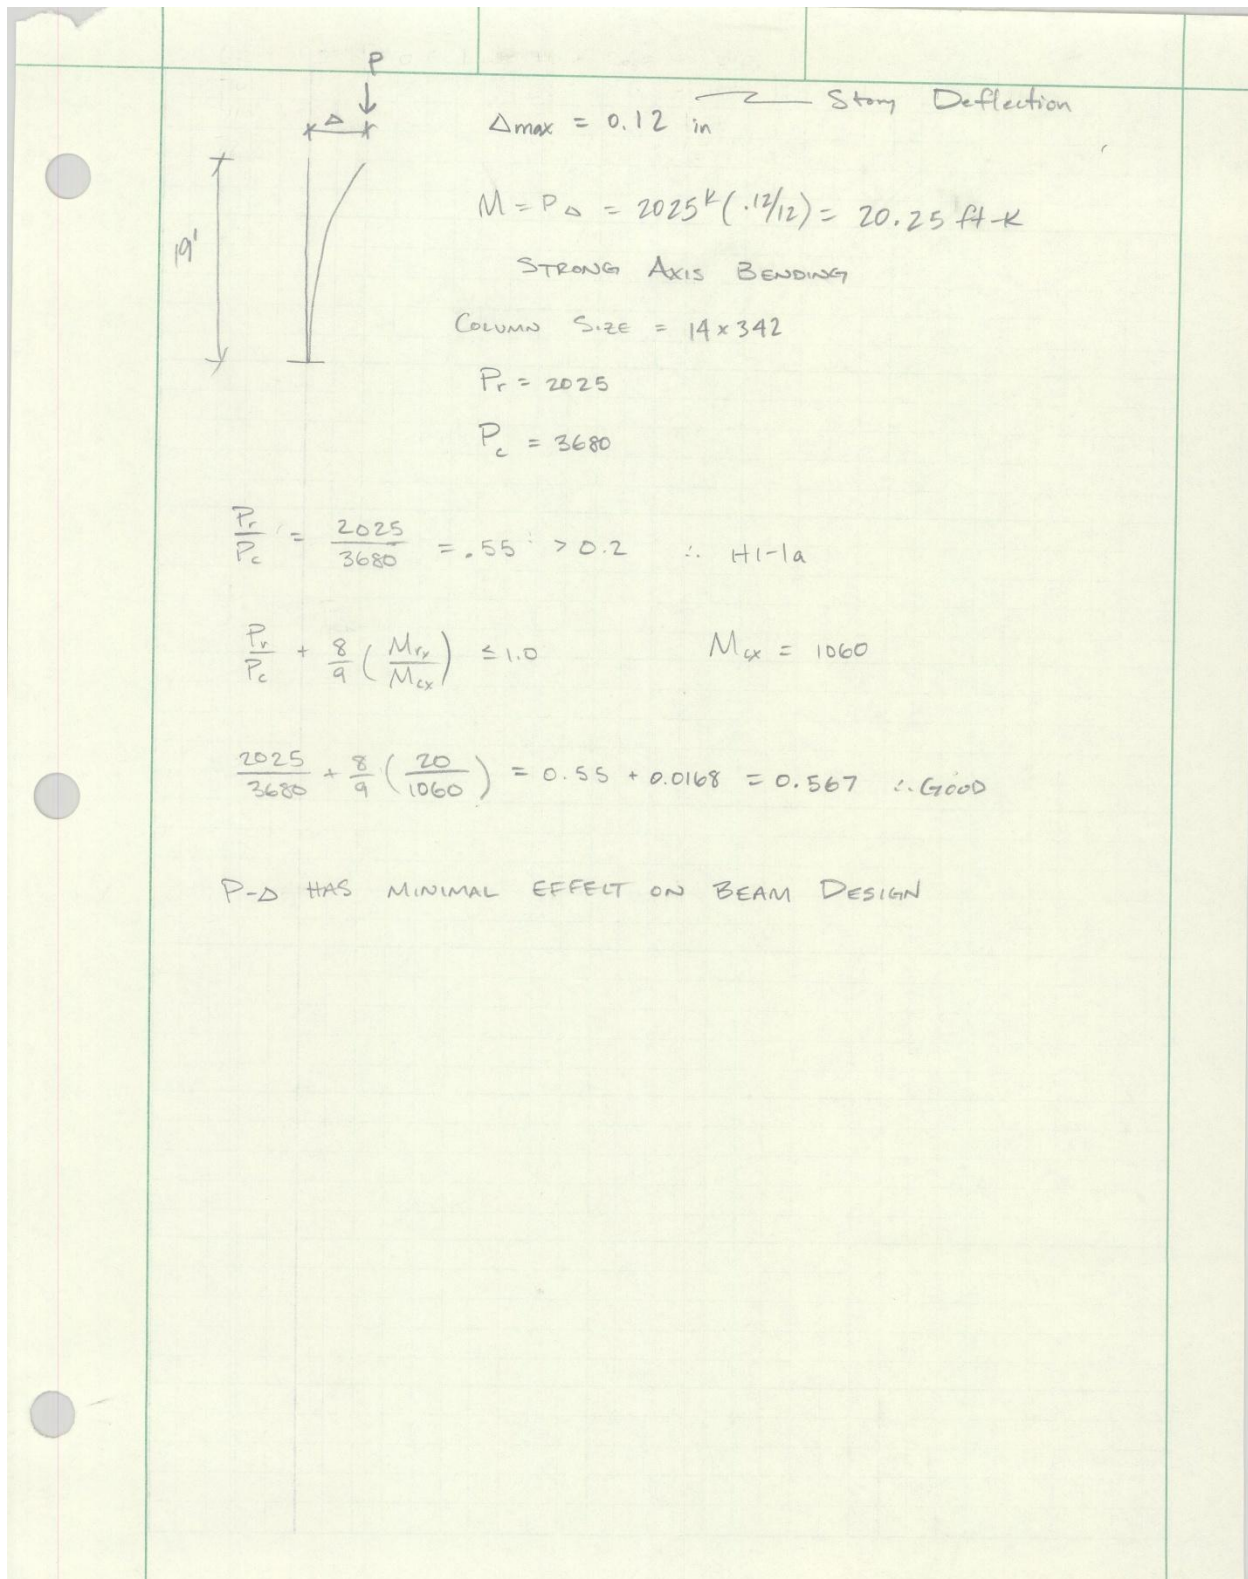 P
Δ
Δmax = 0.12 in
Story Deflection
19'
M = PΔ = 2025ᴷ(.12/12) = 20.25 ft-K
STRONG AXIS BENDING
COLUMN SIZE = 14x342
Pr = 2025
Pc = 3680
Pr/Pc = 2025/3680 = .55 > 0.2 ∴ H1-1a
Pr/Pc + 8/9 (Mrx/Mcx) ≤ 1.0
Mcx = 1060
2025/3680 + 8/9 (20/1060) = 0.55 + 0.0168 = 0.567 ∴ GOOD
P-Δ HAS MINIMAL EFFECT ON BEAM DESIGN